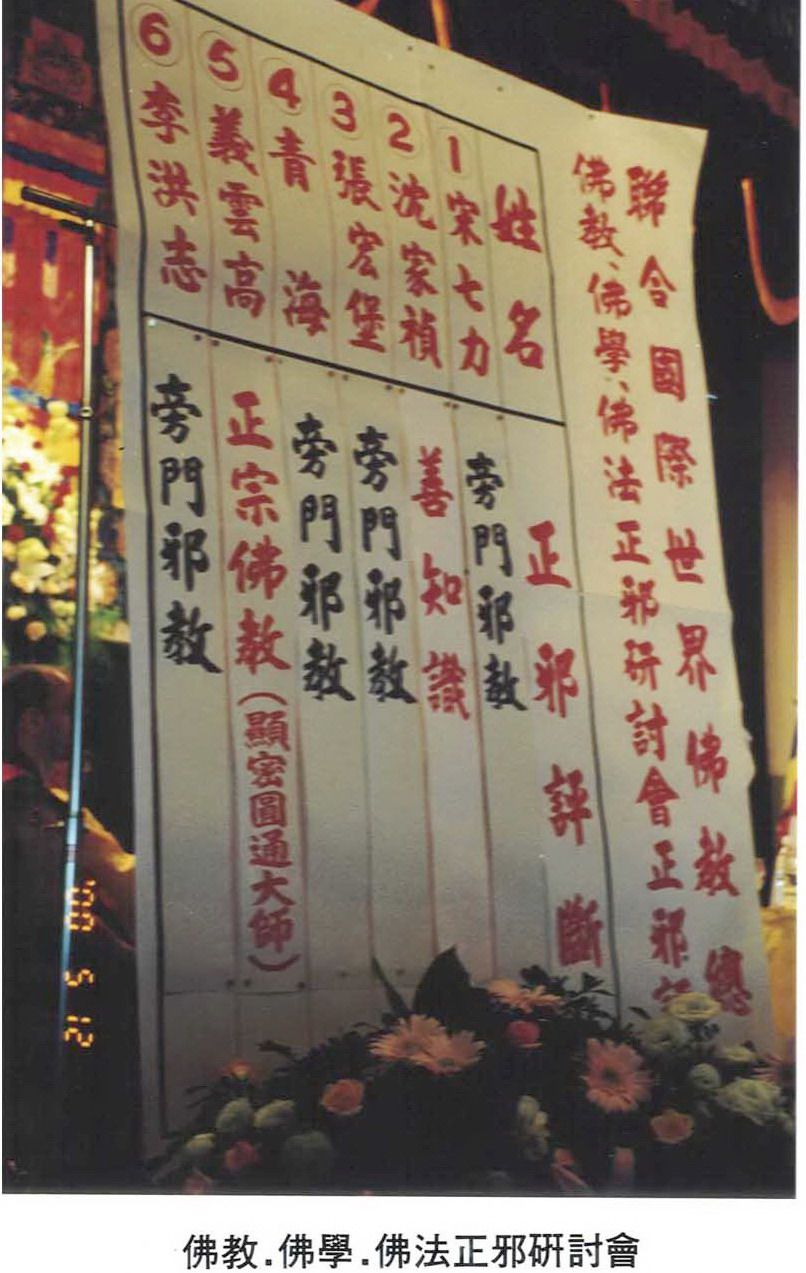 聯合國際世界佛教總
佛教、佛學、佛法正邪研討會正邪
姓名 正邪評斷
1 宋七力 旁門邪教
2 沈家禎 善知識
3 張宏堡 旁門邪教
4 青海 旁門邪教
5 義雲高 正宗佛教(顯密圓通大師)
6 李洪志 旁門邪教
佛教.佛學.佛法正邪研討會